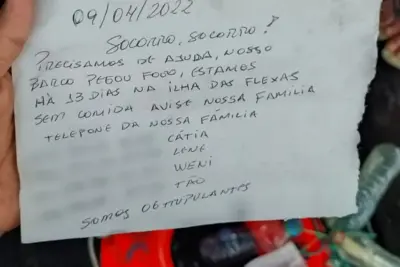 09/04/2022
SOCORRO, SOCORRO!
PRECISAMOS DE AJUDA, NOSSO
BARCO PEGOU FOGO, ESTAMOS
HÁ 13 DIAS NA ILHA DAS FLEXAS
SEM COMIDA AVISE NOSSA FAMILIA
TELEFONE DA NOSSA FÂMILIA
CÁTIA
LENE
WENI
TÃO
SOMOS 06 TRIPULANTES